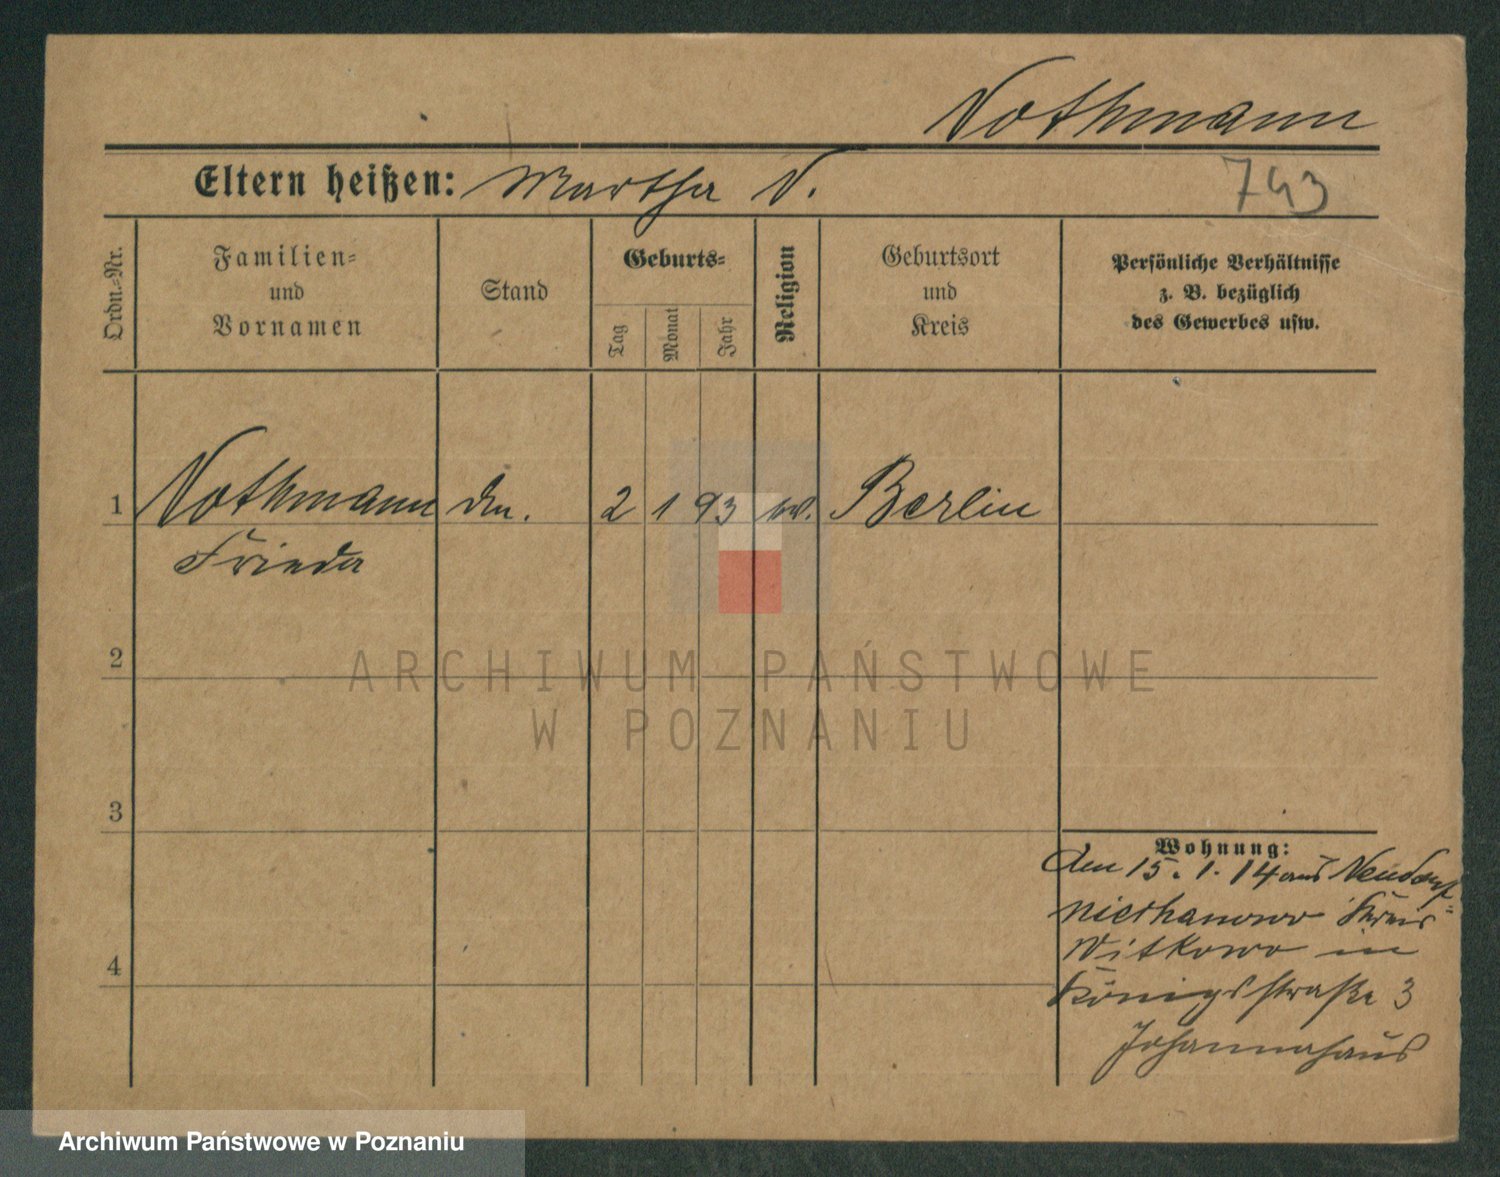 Nothmann
Eltern heißen: Martha N.
743
Ordn.-Nr.
Familien-
und
Vornamen
Stand
Geburts-
Tag
Monat
Jahr
Religion
Geburtsort
und
Kreis
Persönliche Verhältnisse
z. B. bezüglich
des Gewerbes usw.
1 Nothmann 2 1 93 Berlin
Frieda
2
3
4
Wohnung:
Am 15. 1. 14 aus Neudorf-
Kreis
Witkowo in
Königsstraße 3
Johannahaus
ARCHIWUM PAŃSTWOWE
W POZNANIU
Archiwum Państwowe w Poznaniu